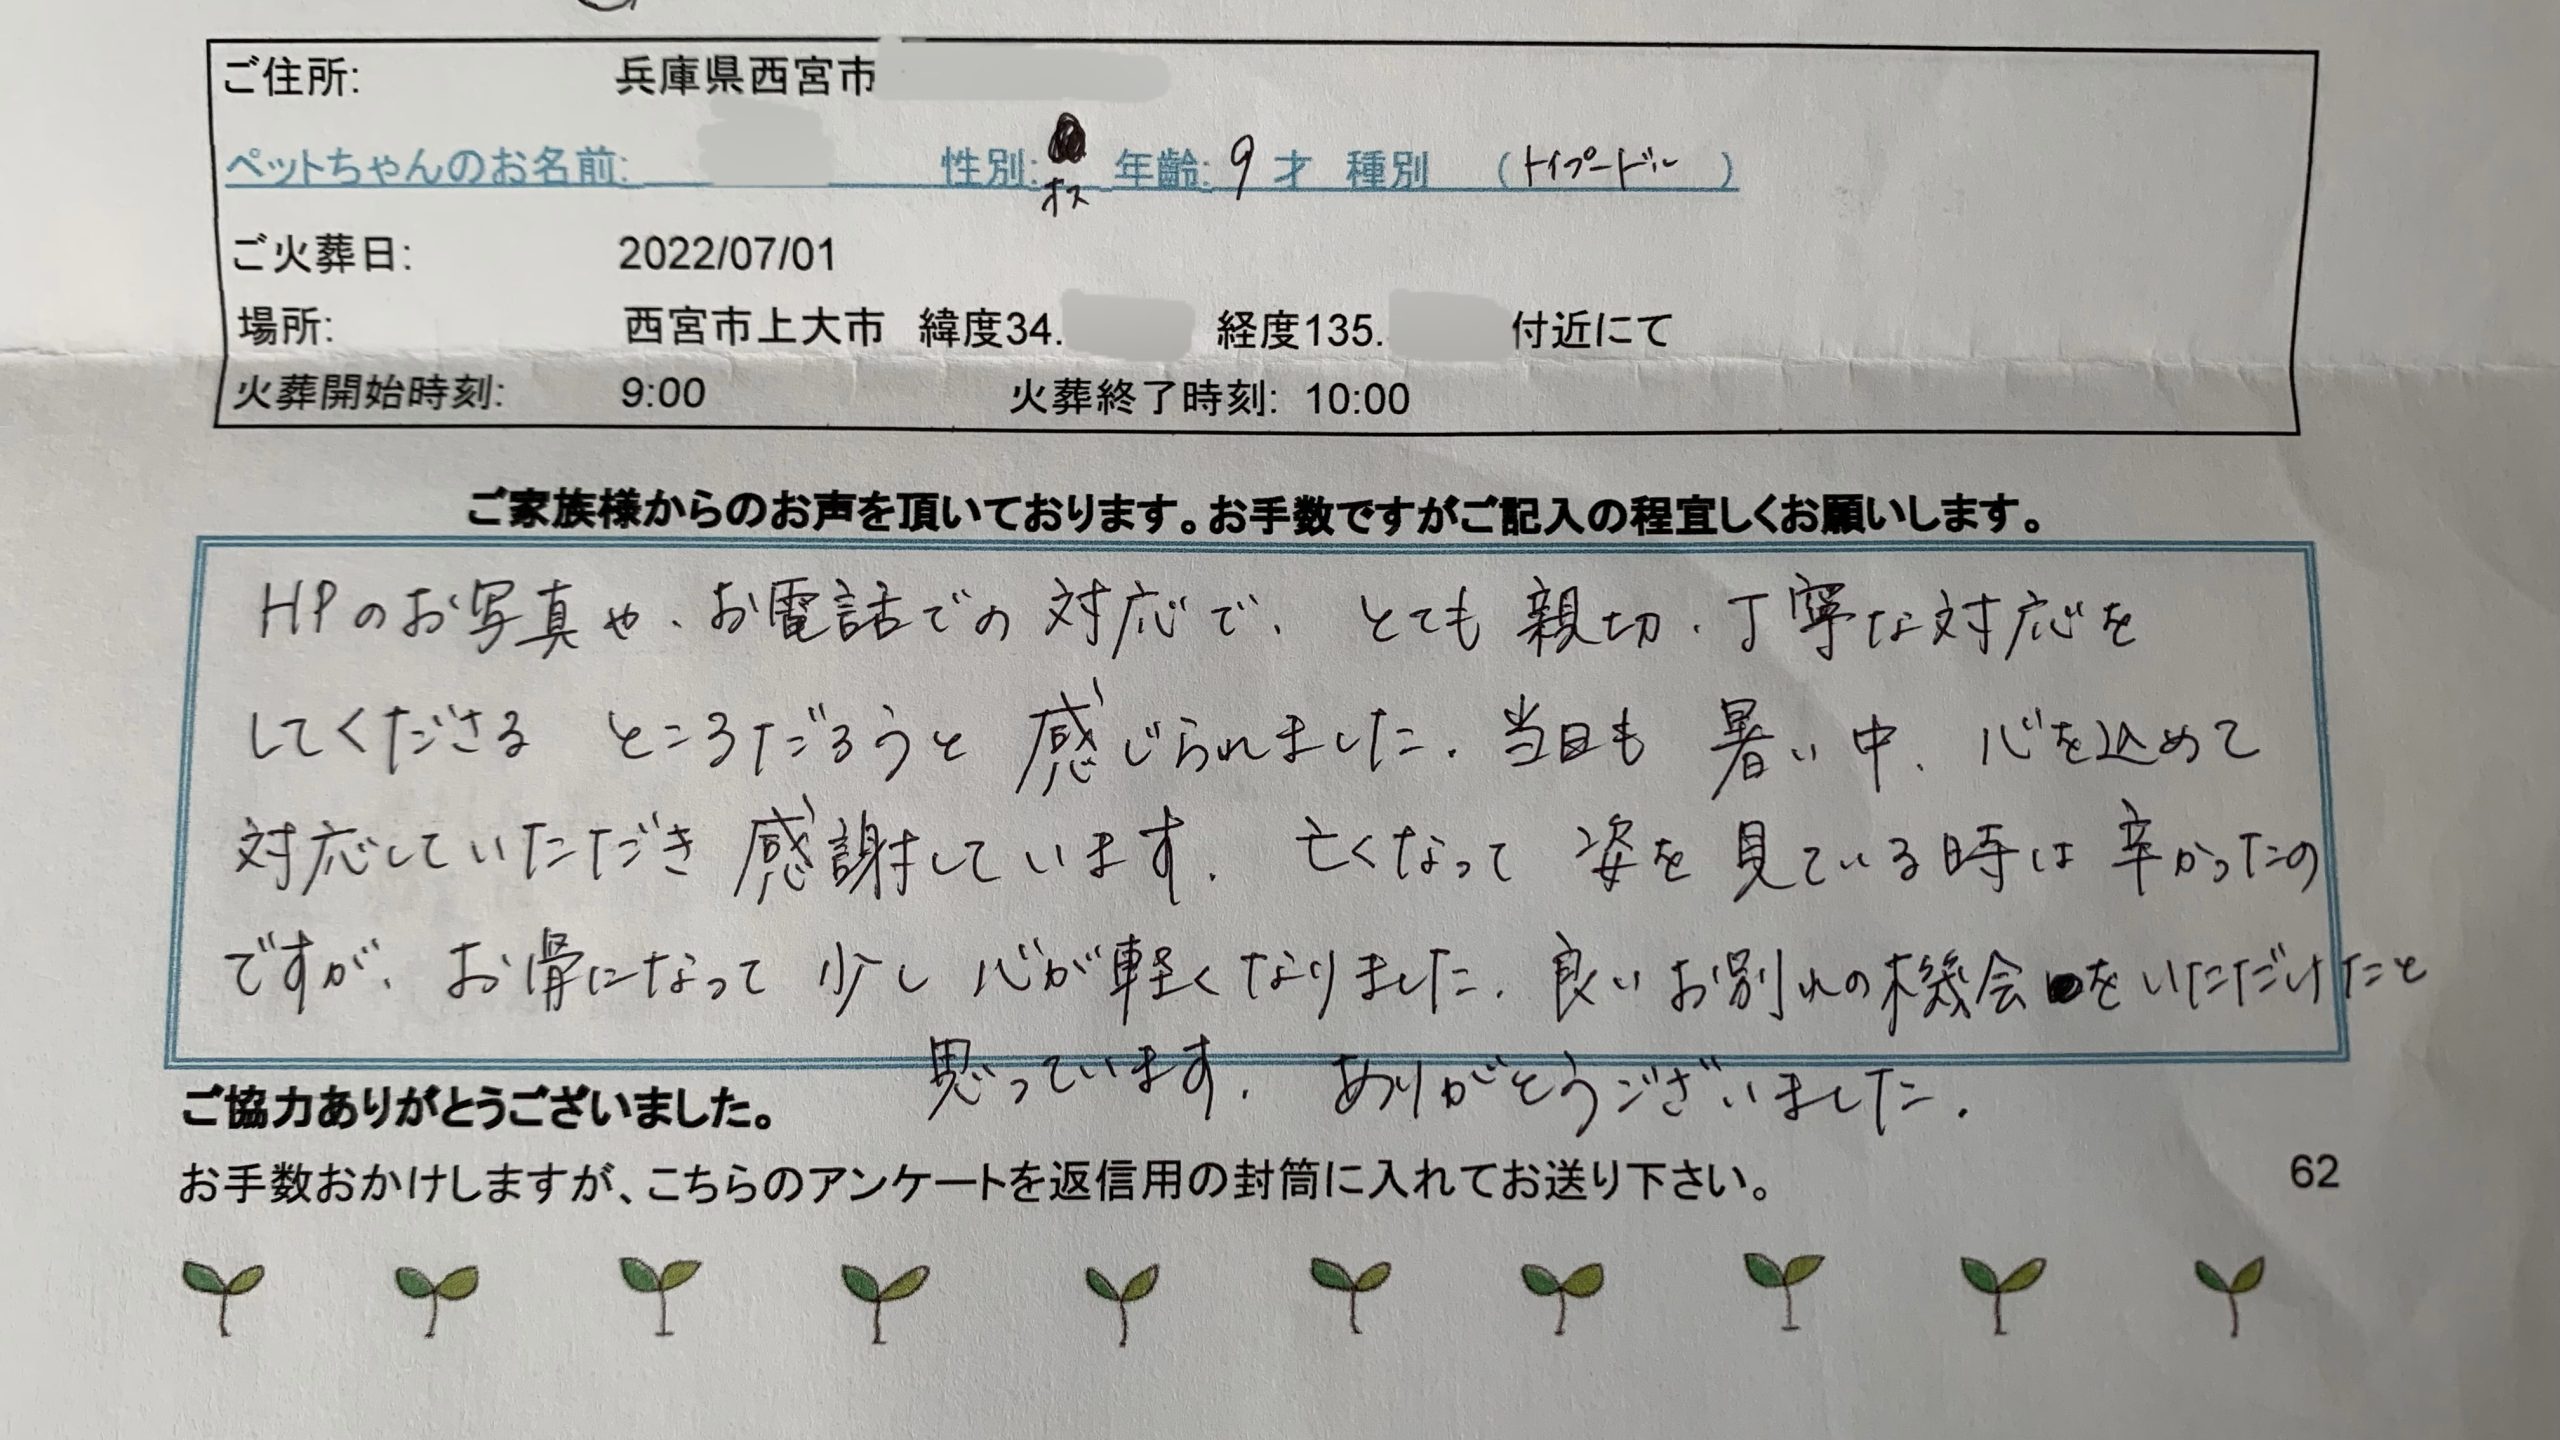 ご住所: 兵庫県西宮市
ペットちゃんのお名前: 性別: オス 年齢: 9 才 種別 (トイプードル)
ご火葬日: 2022/07/01
場所: 西宮市上大市 緯度34. 経度135. 付近にて
火葬開始時刻: 9:00 火葬終了時刻: 10:00
ご家族様からのお声を頂いております。お手数ですがご記入の程宜しくお願いします。
HPのお写真や、お電話での対応で、とても親切、丁寧な対応を
してくださる ところだろうと 感じられました。当日も 暑い中、心を込めて
対応していただき 感謝しています。亡くなって 姿を見ている時は辛かったの
ですが、お骨になって 少し 心が軽くなりました。良いお別れの機会をいただけたと
思っています。ありがとうございました。
ご協力ありがとうございました。
お手数おかけしますが、こちらのアンケートを返信用の封筒に入れてお送り下さい。 62